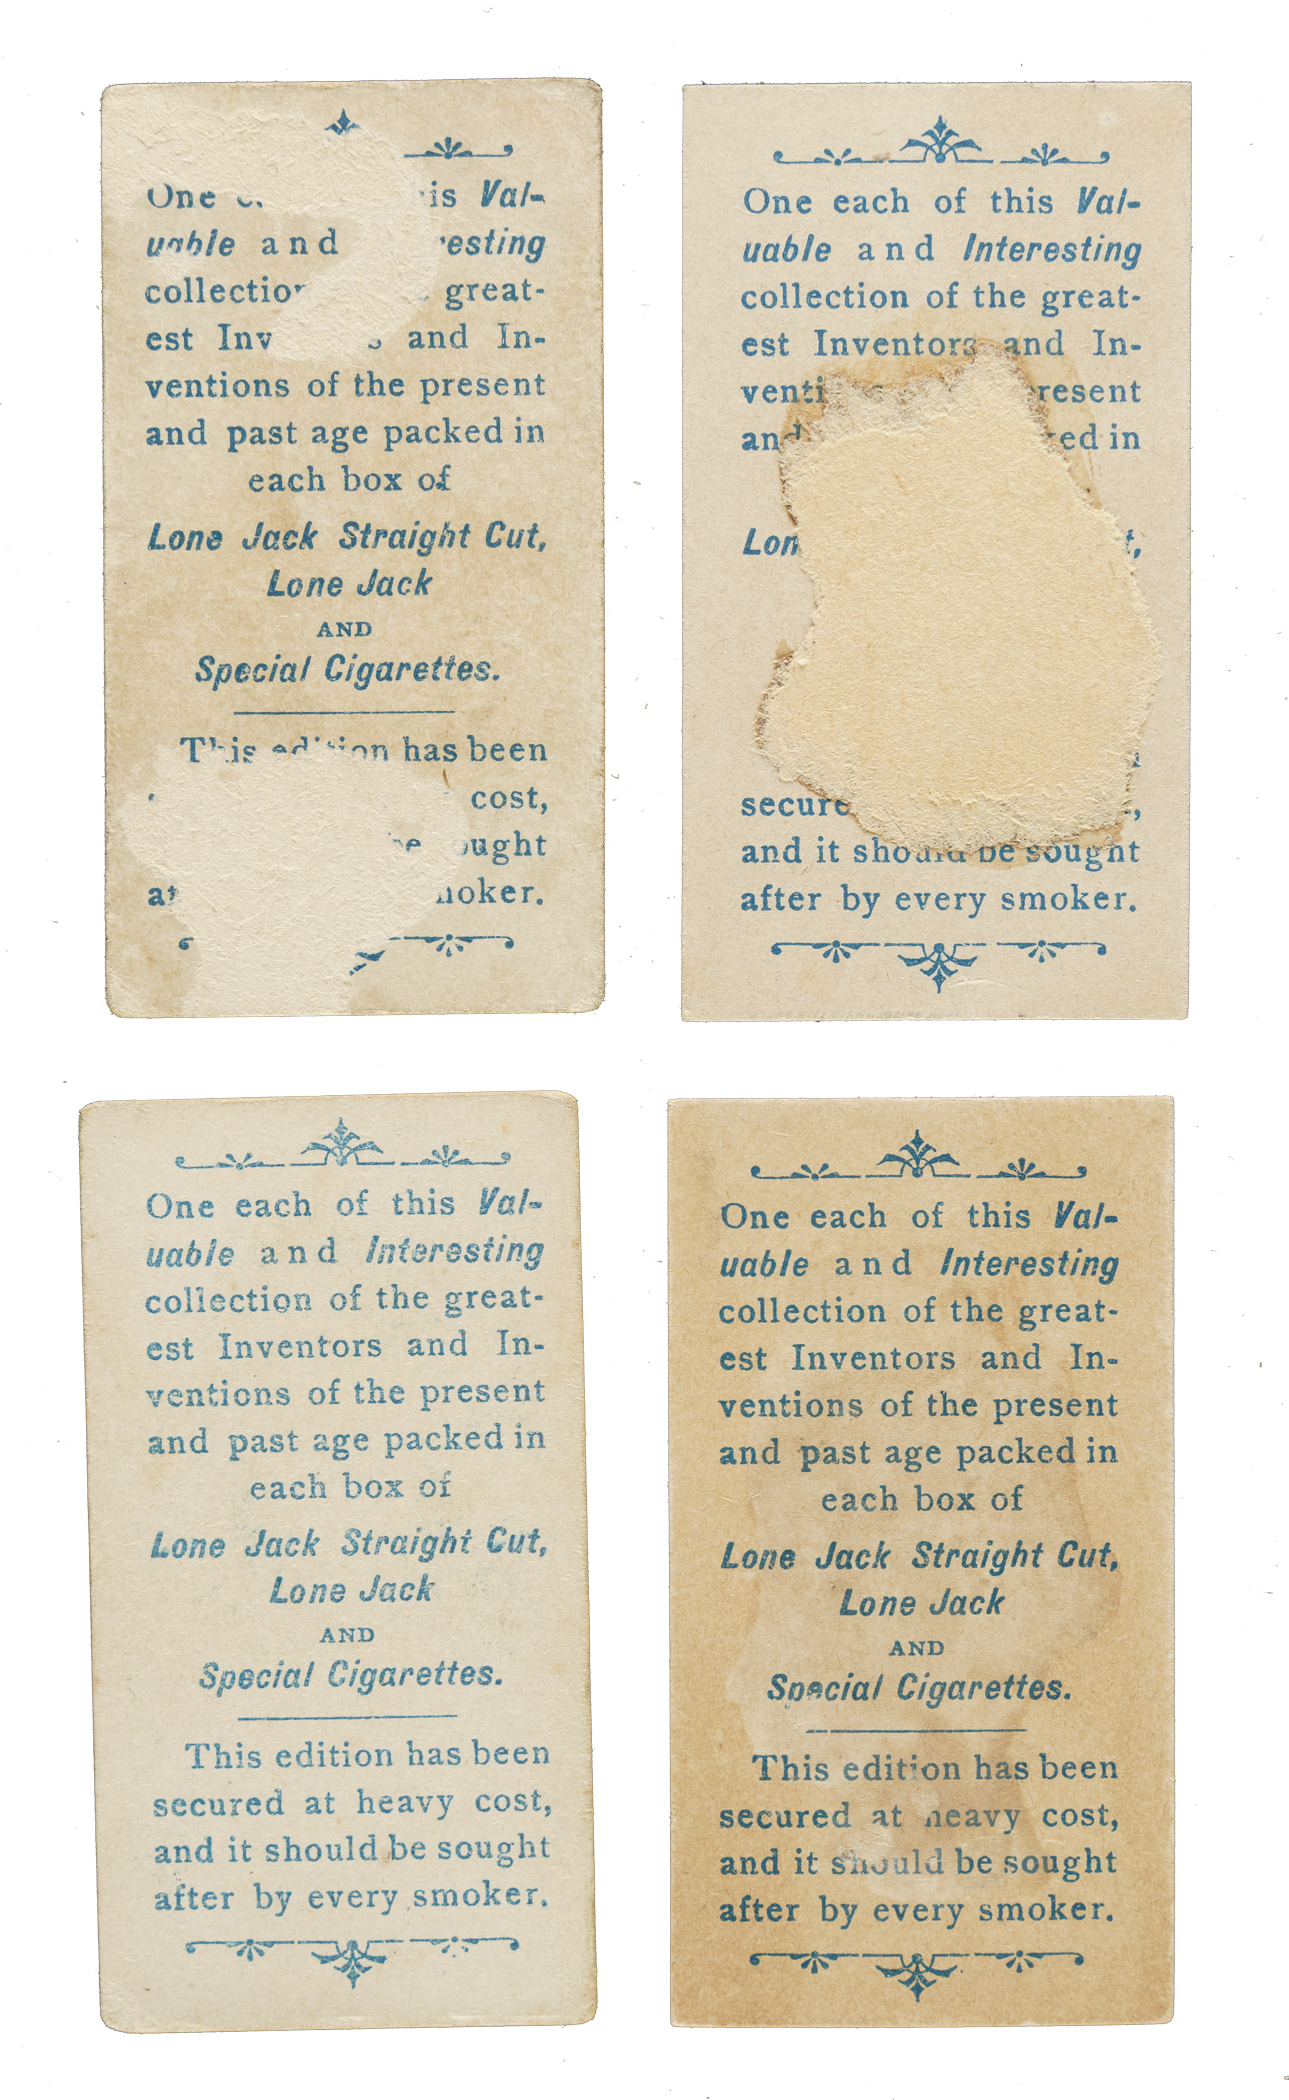 One is Val-
uable and esting
collection great-
est Inv s and In-
ventions of the present
and past age packed in
each box of
Lone Jack Straight Cut,
Lone Jack
AND
Special Cigarettes.
This edition has been
cost,
be ought
moker.
One each of this Val-
uable and Interesting
collection of the great-
est Inventors and In-
venti resent
and ed in
Lon t,
secure ,
and it should be sought
after by every smoker.
One each of this Val-
uable and Interesting
collection of the great-
est Inventors and In-
ventions of the present
and past age packed in
each box of
Lone Jack Straight Cut,
Lone Jack
AND
Special Cigarettes.
This edition has been
secured at heavy cost,
and it should be sought
after by every smoker.
One each of this Val-
uable and Interesting
collection of the great-
est Inventors and In-
ventions of the present
and past age packed in
each box of
Lone Jack Straight Cut,
Lone Jack
AND
Special Cigarettes.
This edition has been
secured at heavy cost,
and it should be sought
after by every smoker.